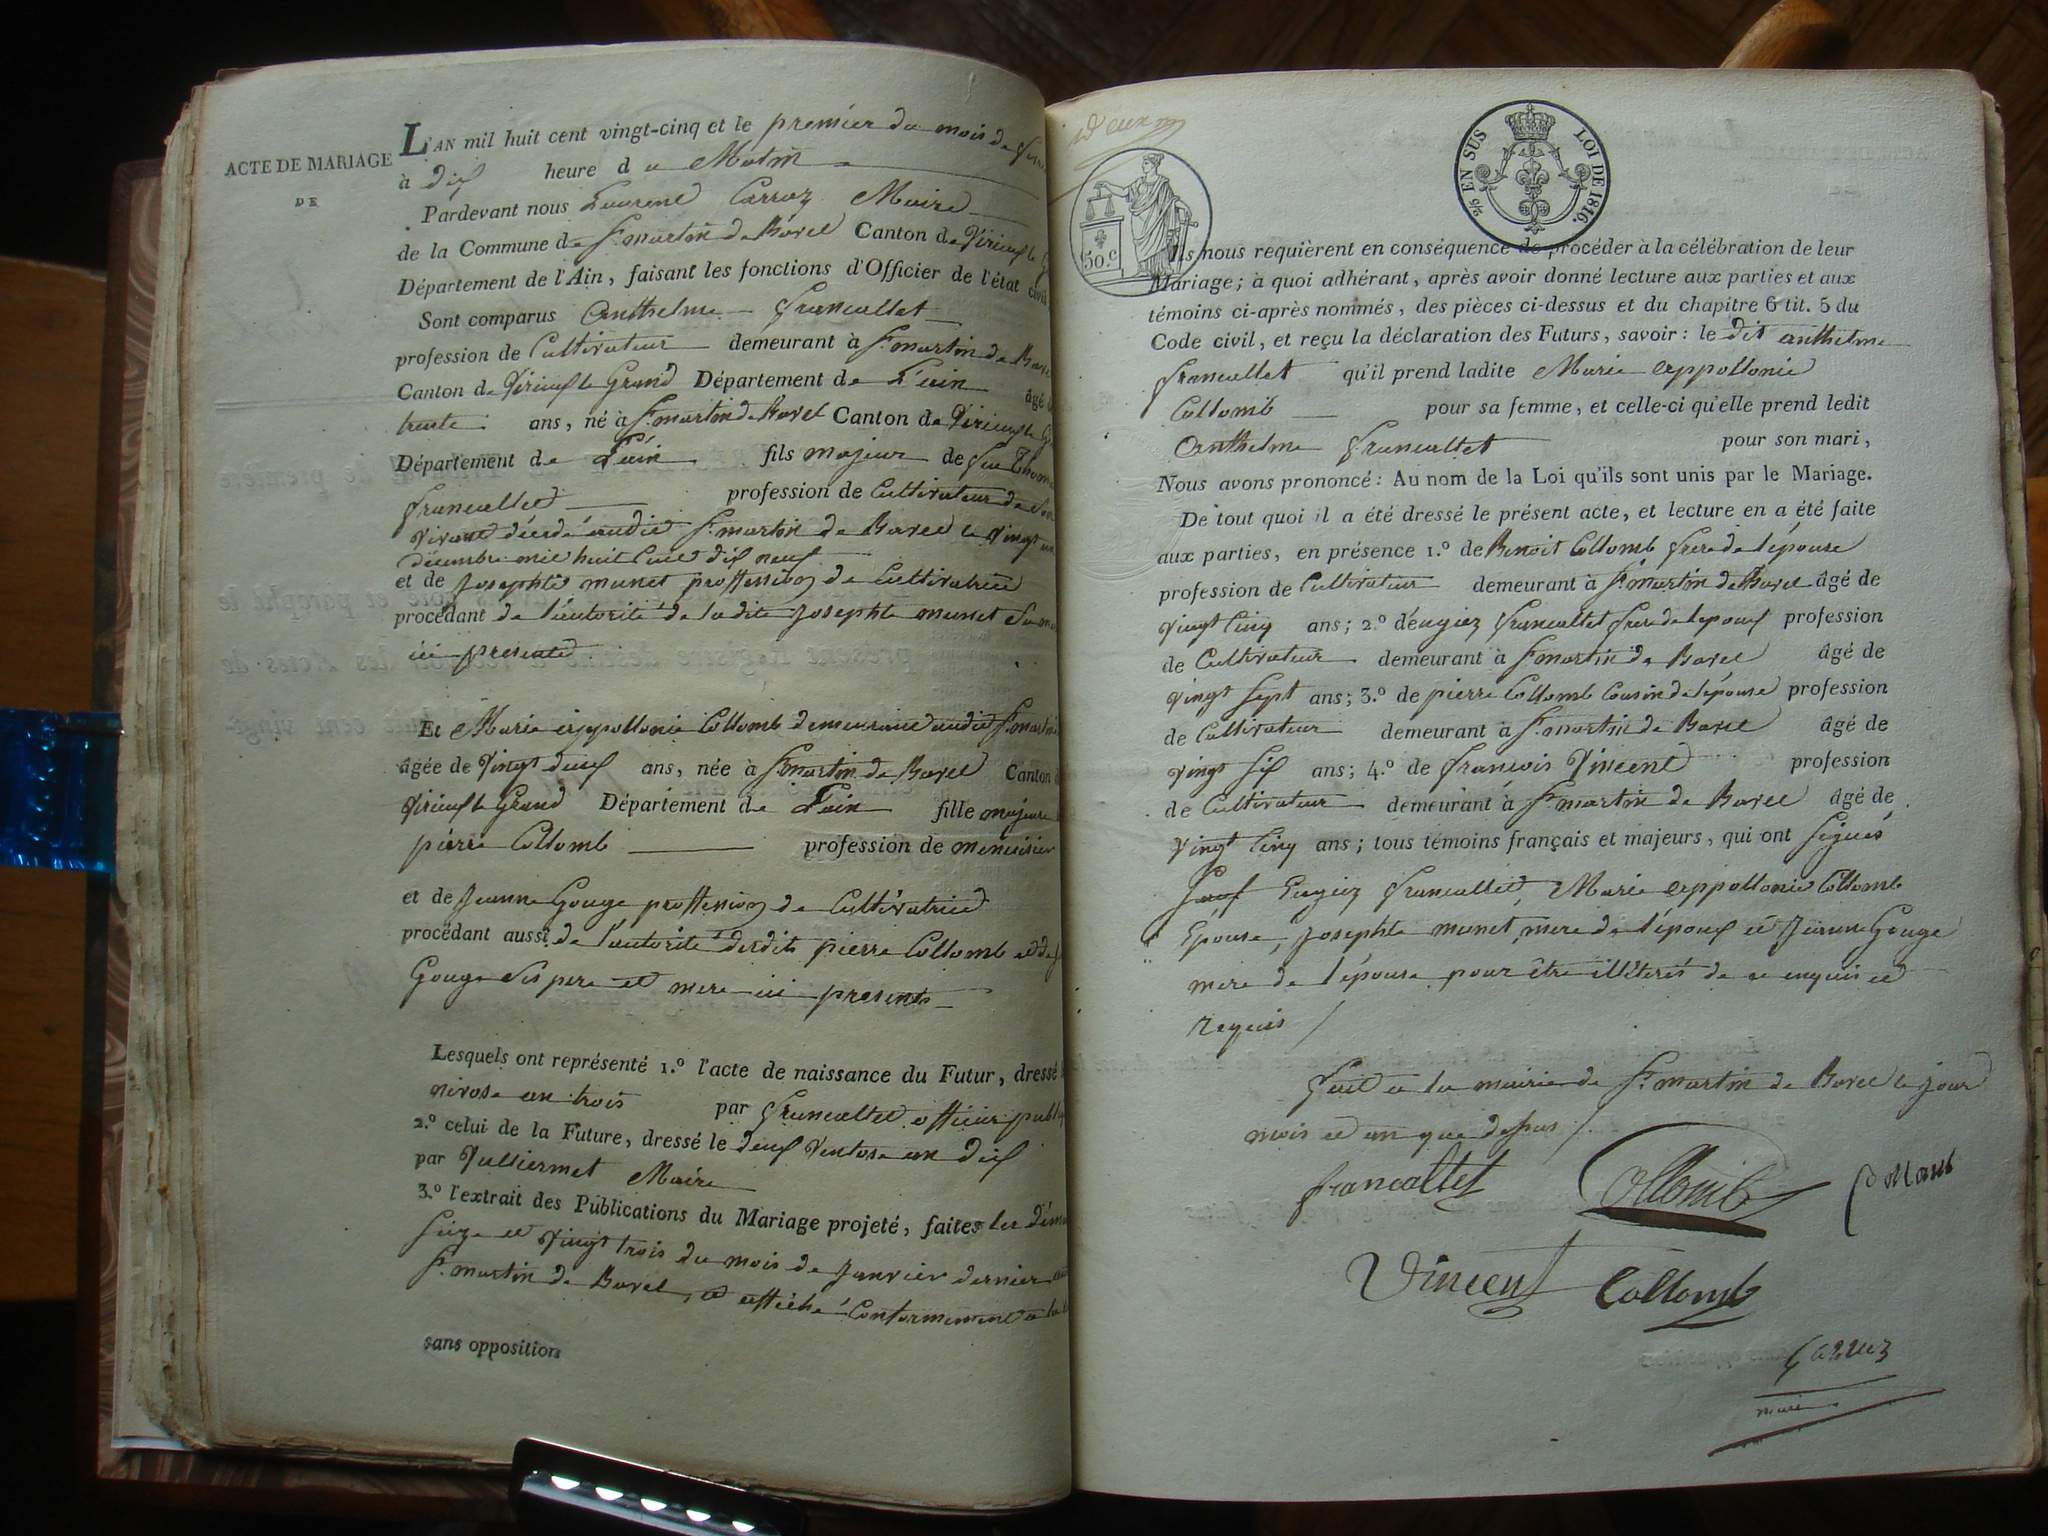 ACTE DE MARIAGE
DE
L'AN mil huit cent vingt-cinq et le premier du mois de
à dix heure d u Matin
Pardevant nous Laurent Carroz Maire
de la Commune de St martin de Bavel Canton de Virieux le
Département de l'Ain, faisant les fonctions d'Officier de l'état civil
Sont comparus Anthelme Francallet
profession de Cultivateur demeurant à St martin de Bavel
Canton de Virieux le Grand Département de L'ain âgé de
trente ans, né à St martin de Bavel Canton de Virieux le
Département de L'ain fils majeur de feu Thomas
Francallet profession de Cultivateur de Son
Vivant décédé audit St martin de Bavel le Vingt un
décembre mil huit Cent dix neuf
et de Josephte munet proffession de Cultivatrice
procédant de l'autorité de ladite Josephte munet Sa mere
ici présente
Et Marie appollonie Collomb demeurant audit St martin
âgée de Vingt deux ans, née à St martin de Bavel Canton de
Virieux le Grand Département de L'ain fille majeure
pierre Collomb profession de menuisier
et de Jeanne Gouge proffession de Cultivatrice
procédant aussi de l'autorité desdits pierre Collomb et de
Gouge Ses pere et mere ici présents
Lesquels ont représenté 1.º l'acte de naissance du Futur, dressé
nivose an trois par Francallet officier public
2.º celui de la Future, dressé le deux Ventose an dix
par Vulliermet Maire
3.º l'extrait des Publications du Mariage projeté, faites les
Seize et Vingt trois du mois de Janvier dernier
St martin de Bavel, et affiché Conformement a la
sans opposition
deux
50.c
EN SUS
LOI DE 1816.
Ils nous requièrent en conséquence de procéder à la célébration de leur
Mariage; à quoi adhérant, après avoir donné lecture aux parties et aux
témoins ci-après nommés, des pièces ci-dessus et du chapitre 6 tit. 5 du
Code civil, et reçu la déclaration des Futurs, savoir: le dit anthelme
Francallet qu'il prend ladite Marie appollonie
Collomb pour sa femme, et celle-ci qu'elle prend ledit
Anthelme Francallet pour son mari,
Nous avons prononcé: Au nom de la Loi qu'ils sont unis par le Mariage.
De tout quoi il a été dressé le présent acte, et lecture en a été faite
aux parties, en présence 1.º de Benoit Collomb frere de l'épouse
profession de Cultivateur demeurant à St martin de Bavel âgé de
Vingt Cinq ans; 2.º d'eugiez Francallet frere de l'epoux profession
de Cultivateur demeurant à St martin de Bavel âgé de
Vingt Sept ans; 3.º de pierre Collomb Cousin de l'épouse profession
de Cultivateur demeurant à St martin de Bavel âgé de
Vingt Six ans; 4.º de francois Vincent profession
de Cultivateur demeurant à St martin de Bavel âgé de
Vingt Cinq ans; tous témoins français et majeurs, qui ont Signés
Sauf Eugiez Francallet, Marie appollonie Collomb
Epouse, Josephte munet, mere de l'époux et Jeanne Gouge
mere de l'épouse pour être illéterés de ce enquis et
requis /
Fait a la mairie de St martin de Bavel le jour
mois et an que dessus /.
francallet Collomb Collomb
Vincent Collomb
Carroz
maire